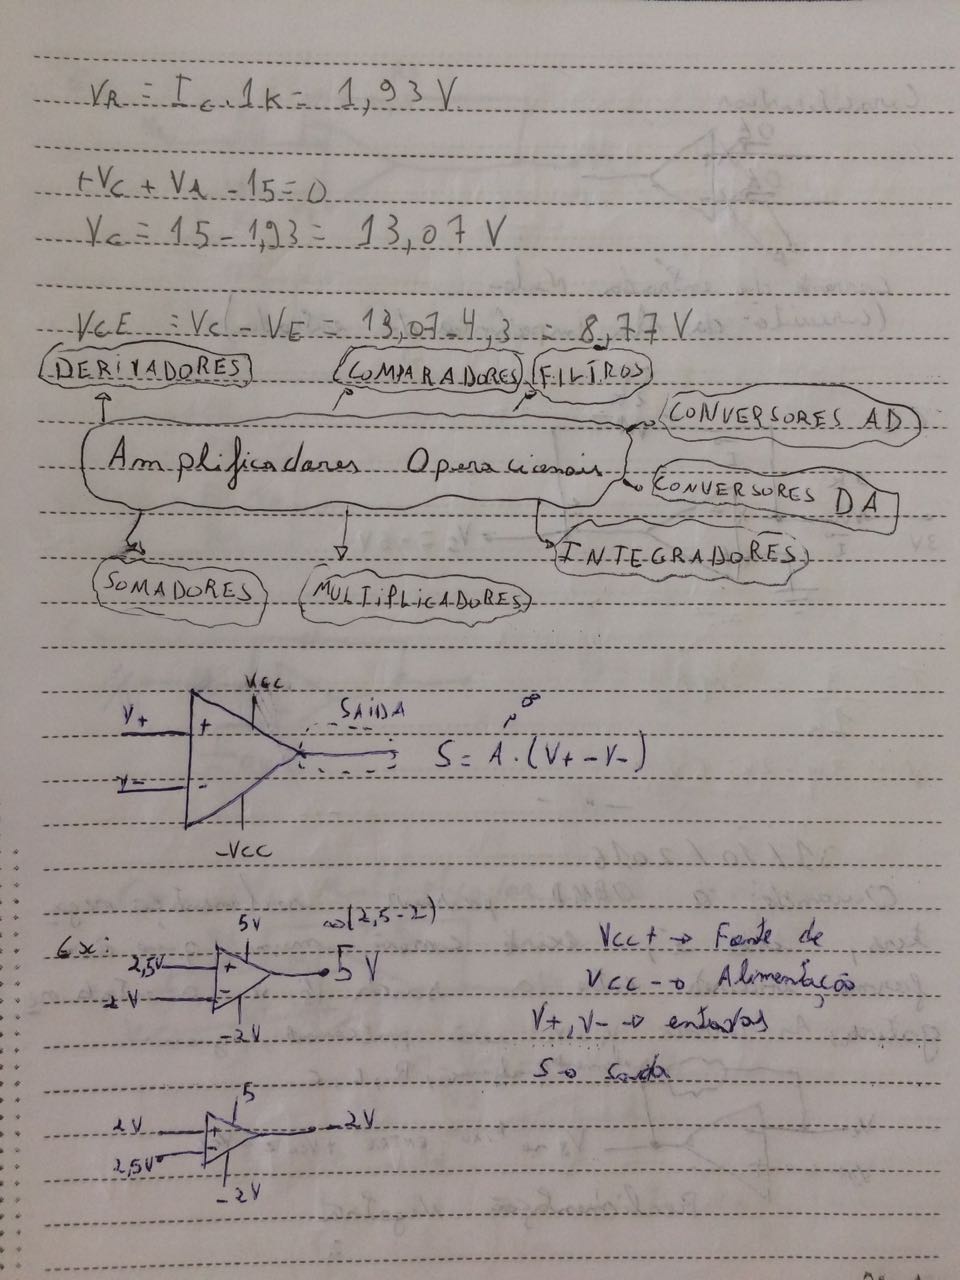 VR = Ic.1K = 1,93 V
+Vc + VR - 15 = 0
Vc = 15 - 1,93 = 13,07 V
VCE = Vc - VE = 13,07-4,3 = 8,77 V
DERIVADORES COMPARADORES FILTROS
CONVERSORES AD
Amplificadores Operacionais
CONVERSORES DA
INTEGRADORES
SOMADORES MULTIPLICADORES
VCC
V+ + SAÍDA ∞
S = A.(V+ - V-)
V- -
-VCC
Ex: 5V ∞(2,5-2)
2,5V + 5 V
2V -
-2V
Vcc+ → Fonte de
Vcc- → Alimentação
V+, V- → entradas
S → Saída
5
2V + -2V
2,5V -
-2V